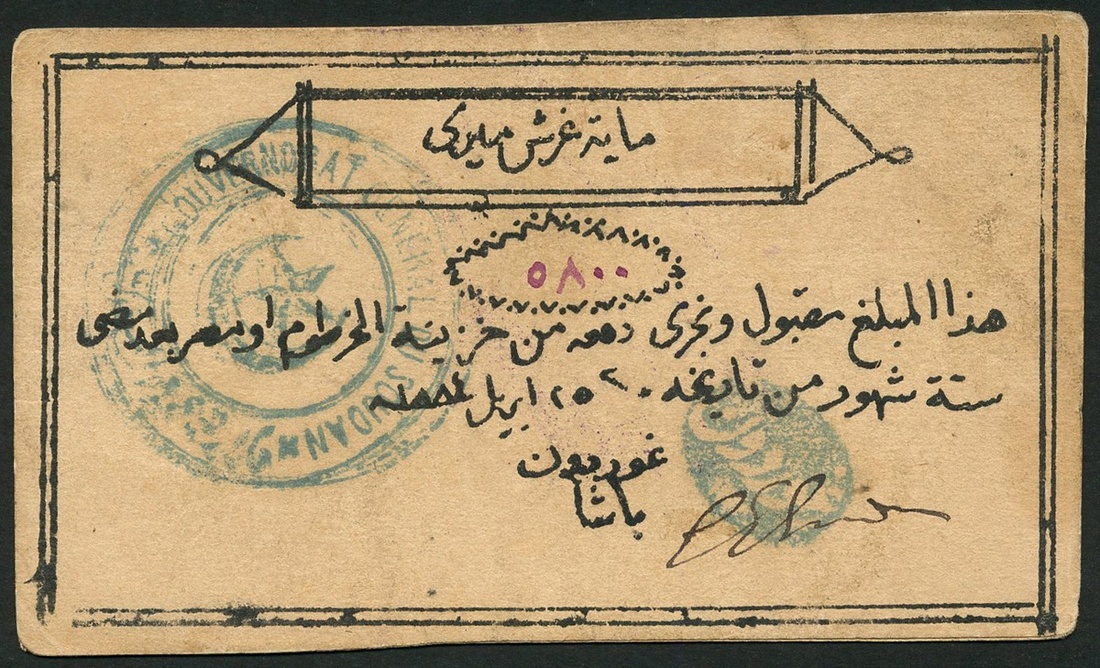 ماية غرش ميرى
٥٨٠٠
هذا المبلغ مقبول وتجرى دفعه من خزينة الخرطوم او مصر بعد مضى
ستة شهور من تاريخه ٢٥ ابريل ١٨٨٤
غوردون
باشا
GOUVERNORAT GENERAL SOUDAN